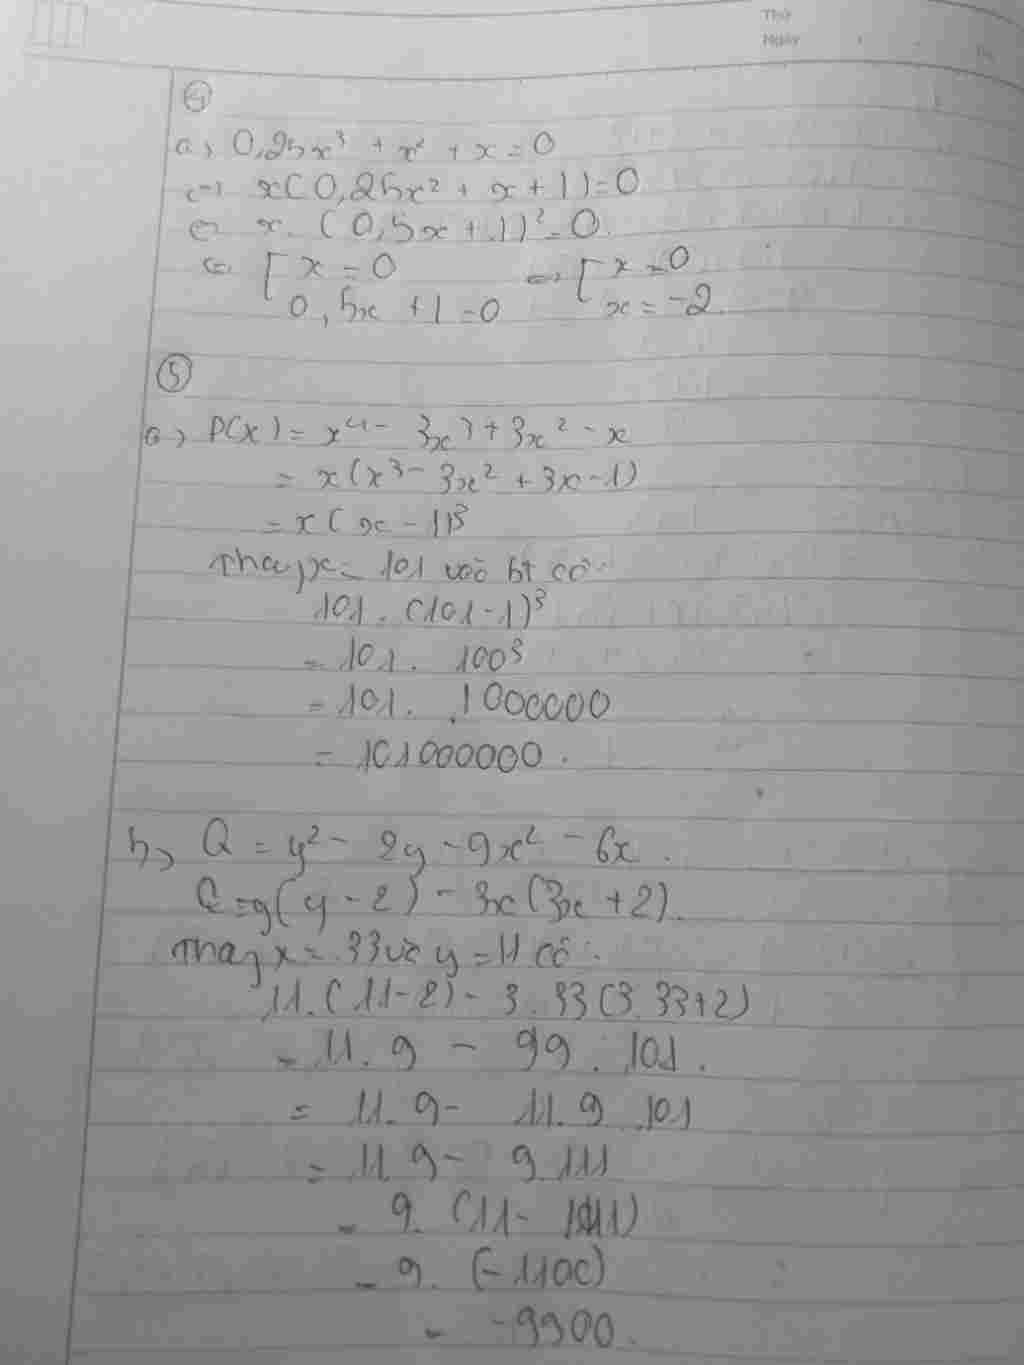 Thứ
Ngày
④
a, 0,25x³ + x² + x = 0
<=> x(0,25x² + x + 1) = 0
<=> x. (0,5x + 1)² = 0
<=> [ x = 0 <=> [ x = 0
0,5x + 1 = 0 x = -2.
⑤
a, P(x) = x⁴ - 3x³ + 3x² - x
= x(x³ - 3x² + 3x - 1)
= x(x - 1)³
Thay x = 101 vào bt có:
101. (101 - 1)³
= 101. 100³
= 101. 1000000
= 101000000.
b, Q = y² - 2y - 9x² - 6x.
Q = y(y - 2) - 3x(3x + 2).
Thay x = 33 và y = 11 có:
11. (11 - 2) - 3. 33(3. 33 + 2)
= 11. 9 - 99. 101.
= 11. 9 - 11. 9. 101
= 11. 9 - 9. 1111
= 9. (11 - 1111)
= 9. (-1100)
= -9900.